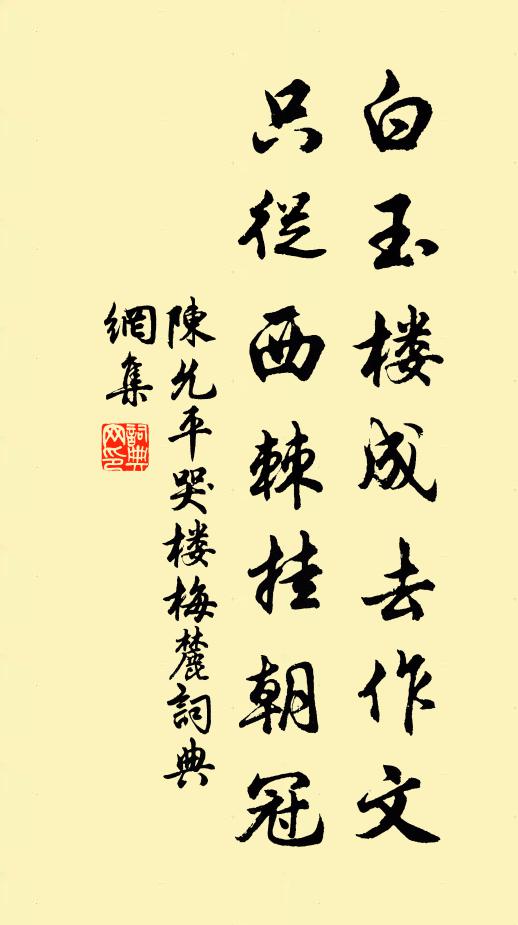 白玉楼成去作文
只從西棘挂朝冠
陳允平哭楼梅麓詞典
網集
詞典
网印